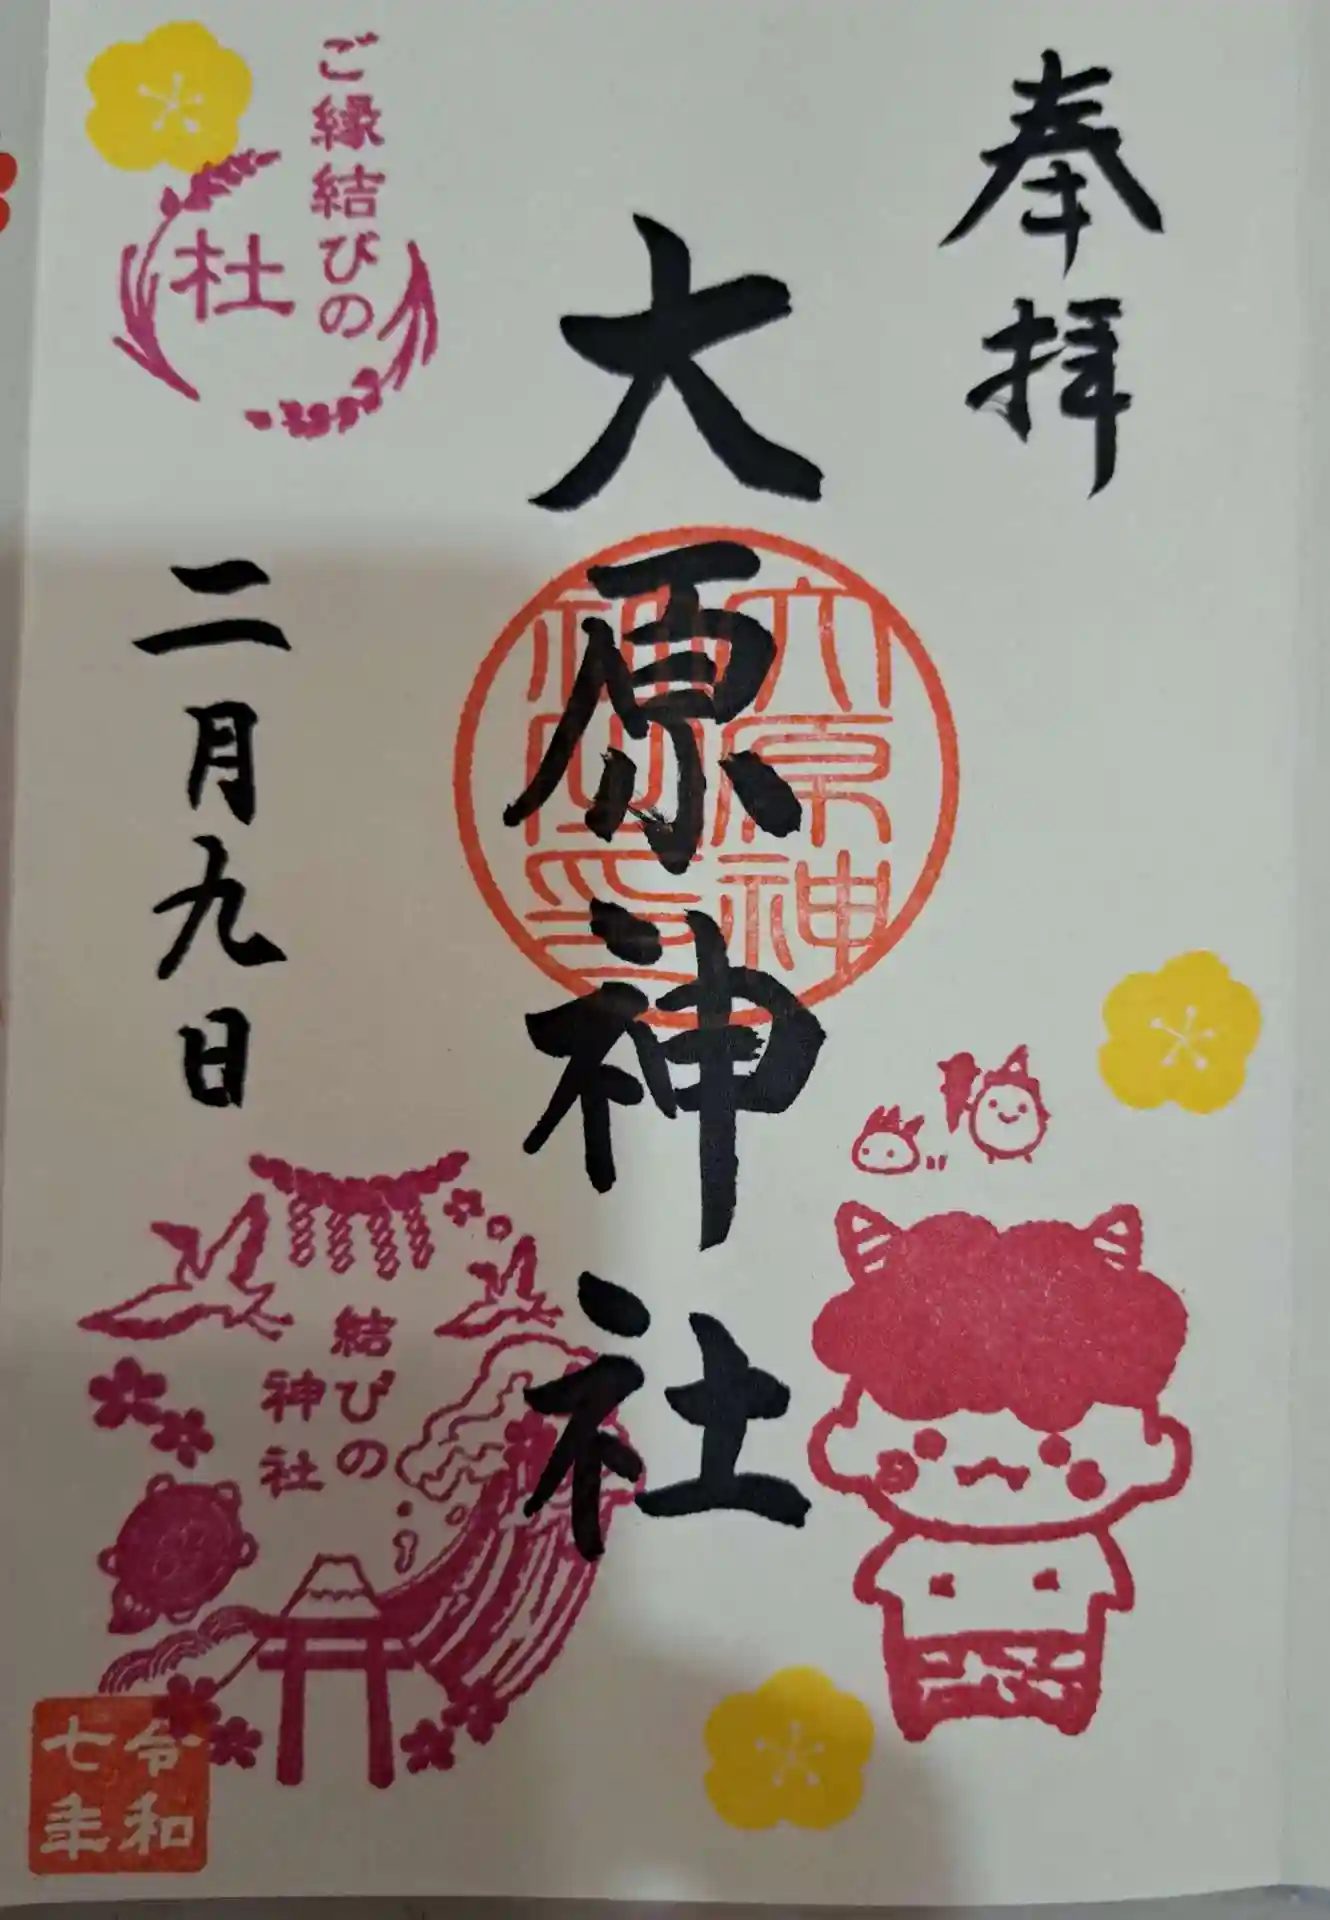 奉拝
大原神社
大原神
社印
ご縁結びの
杜
二月九日
結びの
神社
令和
七年